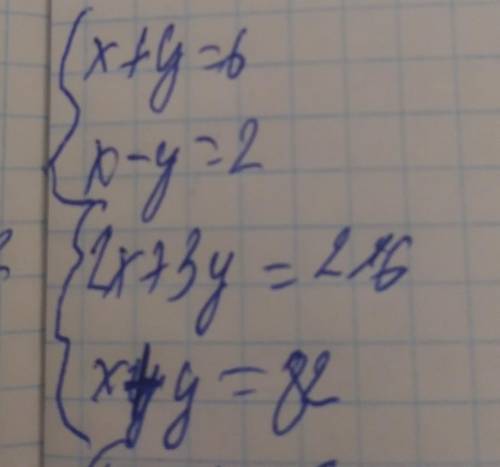 x+y=6
x-y=2
2x+3y=216
x+y=82